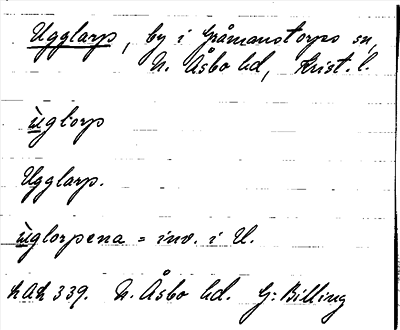 Ugglarp, by i Gråmanstorps sn,
N. Åsbo hd, Krist. l.
ùglorp
Ugglarp.
ùglorpena = inv. i U.
LAL 339. N. Åsbo hd. G. Billing